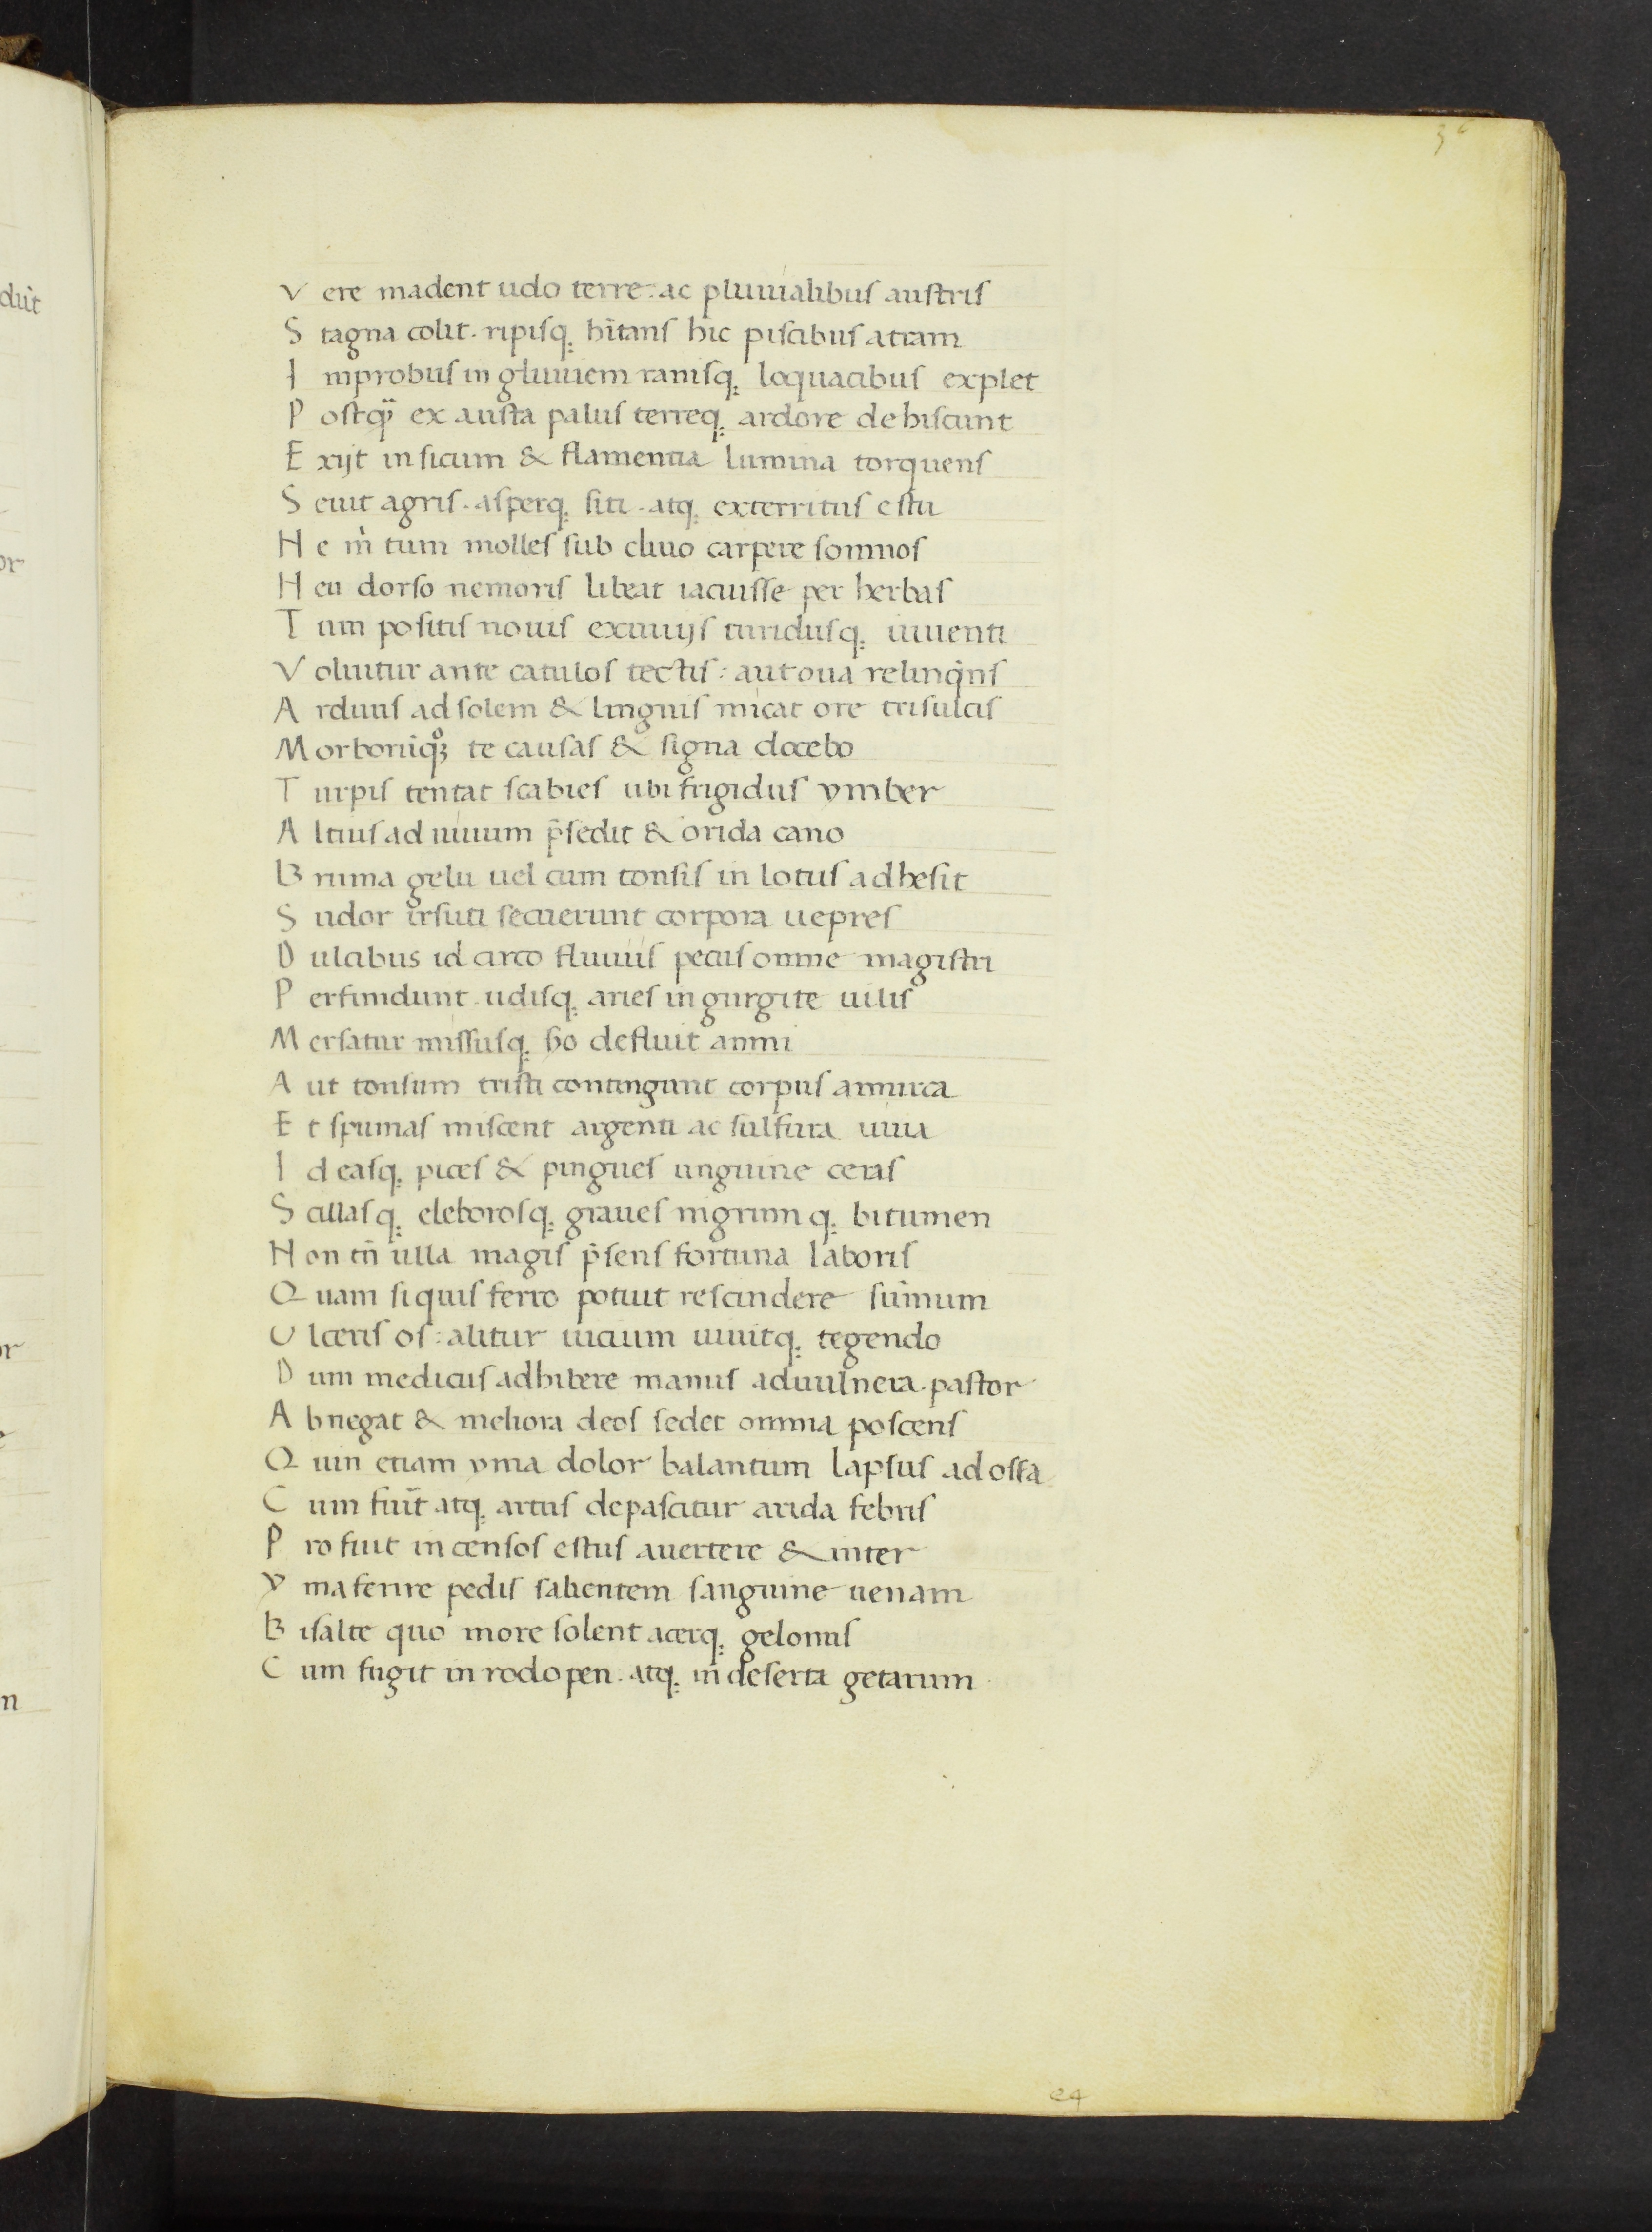 36
Vere madent udo terre: ac pluuialibus austris
Stagna colit. ripisq; hĩtans hic piscibus atram
Inprobus in gluuiem ranisq; loquacibus explet
Postq̃ ex austa palus terreq; ardore dehiscunt
Exijt in sicum & flamentia lumina torquens
Seuit agris. asperq; siti. atq; exterritus estu
Ne m̀ tum molles sub diuo carpere somnos
Neu dorso nemoris libeat iacuisse per herbas
Tum positis nouis exuuijs turidusq; iuuenta
Voluitur ante catulos tectis: aut oua relinqñs
Arduus ad solem & linguis micat ore trisulcis
Morborũqȝ te causas & signa docebo
Turpis tentat scabies ubi frigidus ymber
Altius ad uiuum p̃sedit & orida cano
Bruma gelu uel cum tonsis in lotus adhesit
Sudor irsuti secuerunt corpora uepres
Dulcibus id circo fluuiis pecus omne magistri
Perfundunt. udisq; aries in gurgite uilis
Mersatur missusq; so defluit amni
Aut tonsum tristi contingunt corpus amurca
Et spumas miscent argenti ac sulfura uiua
Ideasq; pices & pingues unguine ceras
Scillasq; eleborosq; graues nigrumq; bitumen
Non tñ ulla magis p̃sens fortuna laboris
Quam si quis ferro potuit rescindere sũmum
Ulceris os: alitur uicium uiuitq; tegendo
Dum medicus adhibere manus ad uulnera. pastor
Abnegat & meliora deos sedet omnia poscens
Quin etiam yma dolor balantum lapsus ad ossa
Cum fuĩt atq; artus depascitur arida febris
Profuit in censos estus auertere & inter
Yma ferire pedis salientem sanguine uenam
Bisalte quo more solent acerq; gelonus
Cum fugit in rodopen. atq; in deserta getarum
e4